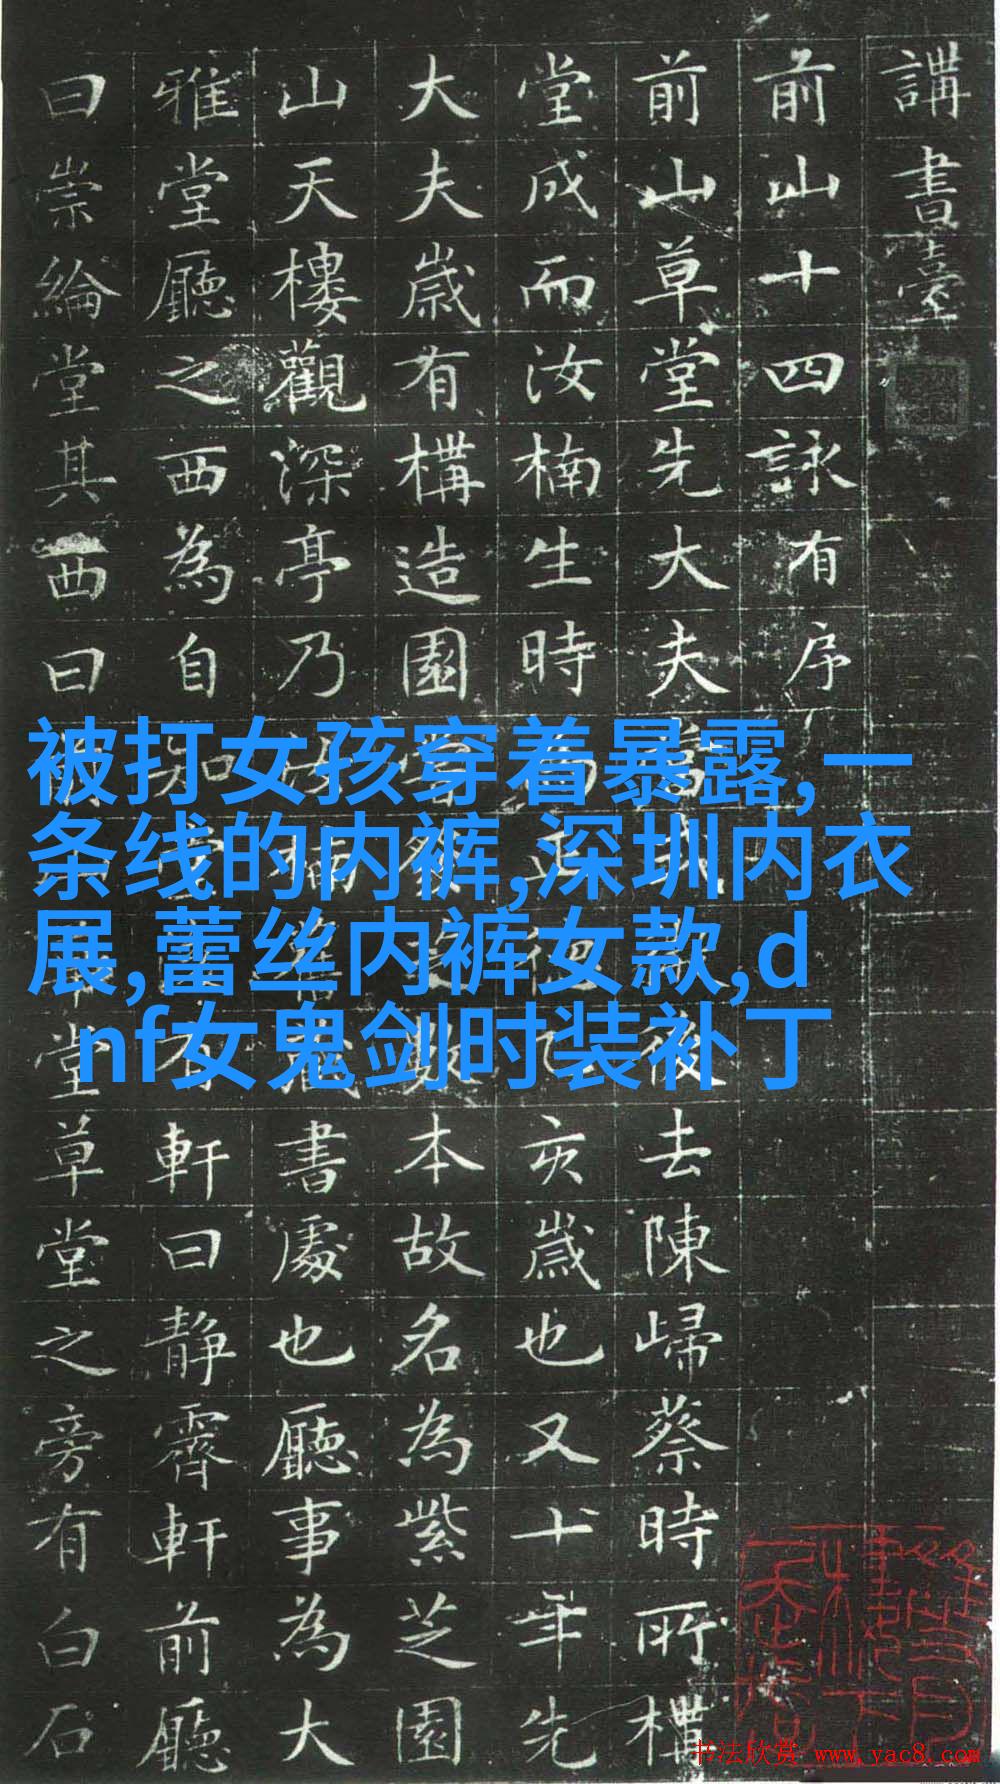 講書臺
前山十四詠有序
前山草堂先大夫去陳歸蔡時所構
堂成而汝楠生時亥歲也又十年先
大夫歲有構造園本故名為紫芝園
山天樓觀深亭乃書處也廳事為大
雅堂廳之西為自軒曰静霽軒前廳
曰崇綸堂其西曰堂草堂之旁有白石
被打女孩穿着暴露,一
条线的内裤,深圳内衣
展,蕾丝内裤女款,d
nf女鬼剑时装补丁
书法欣赏 www.yac8.com